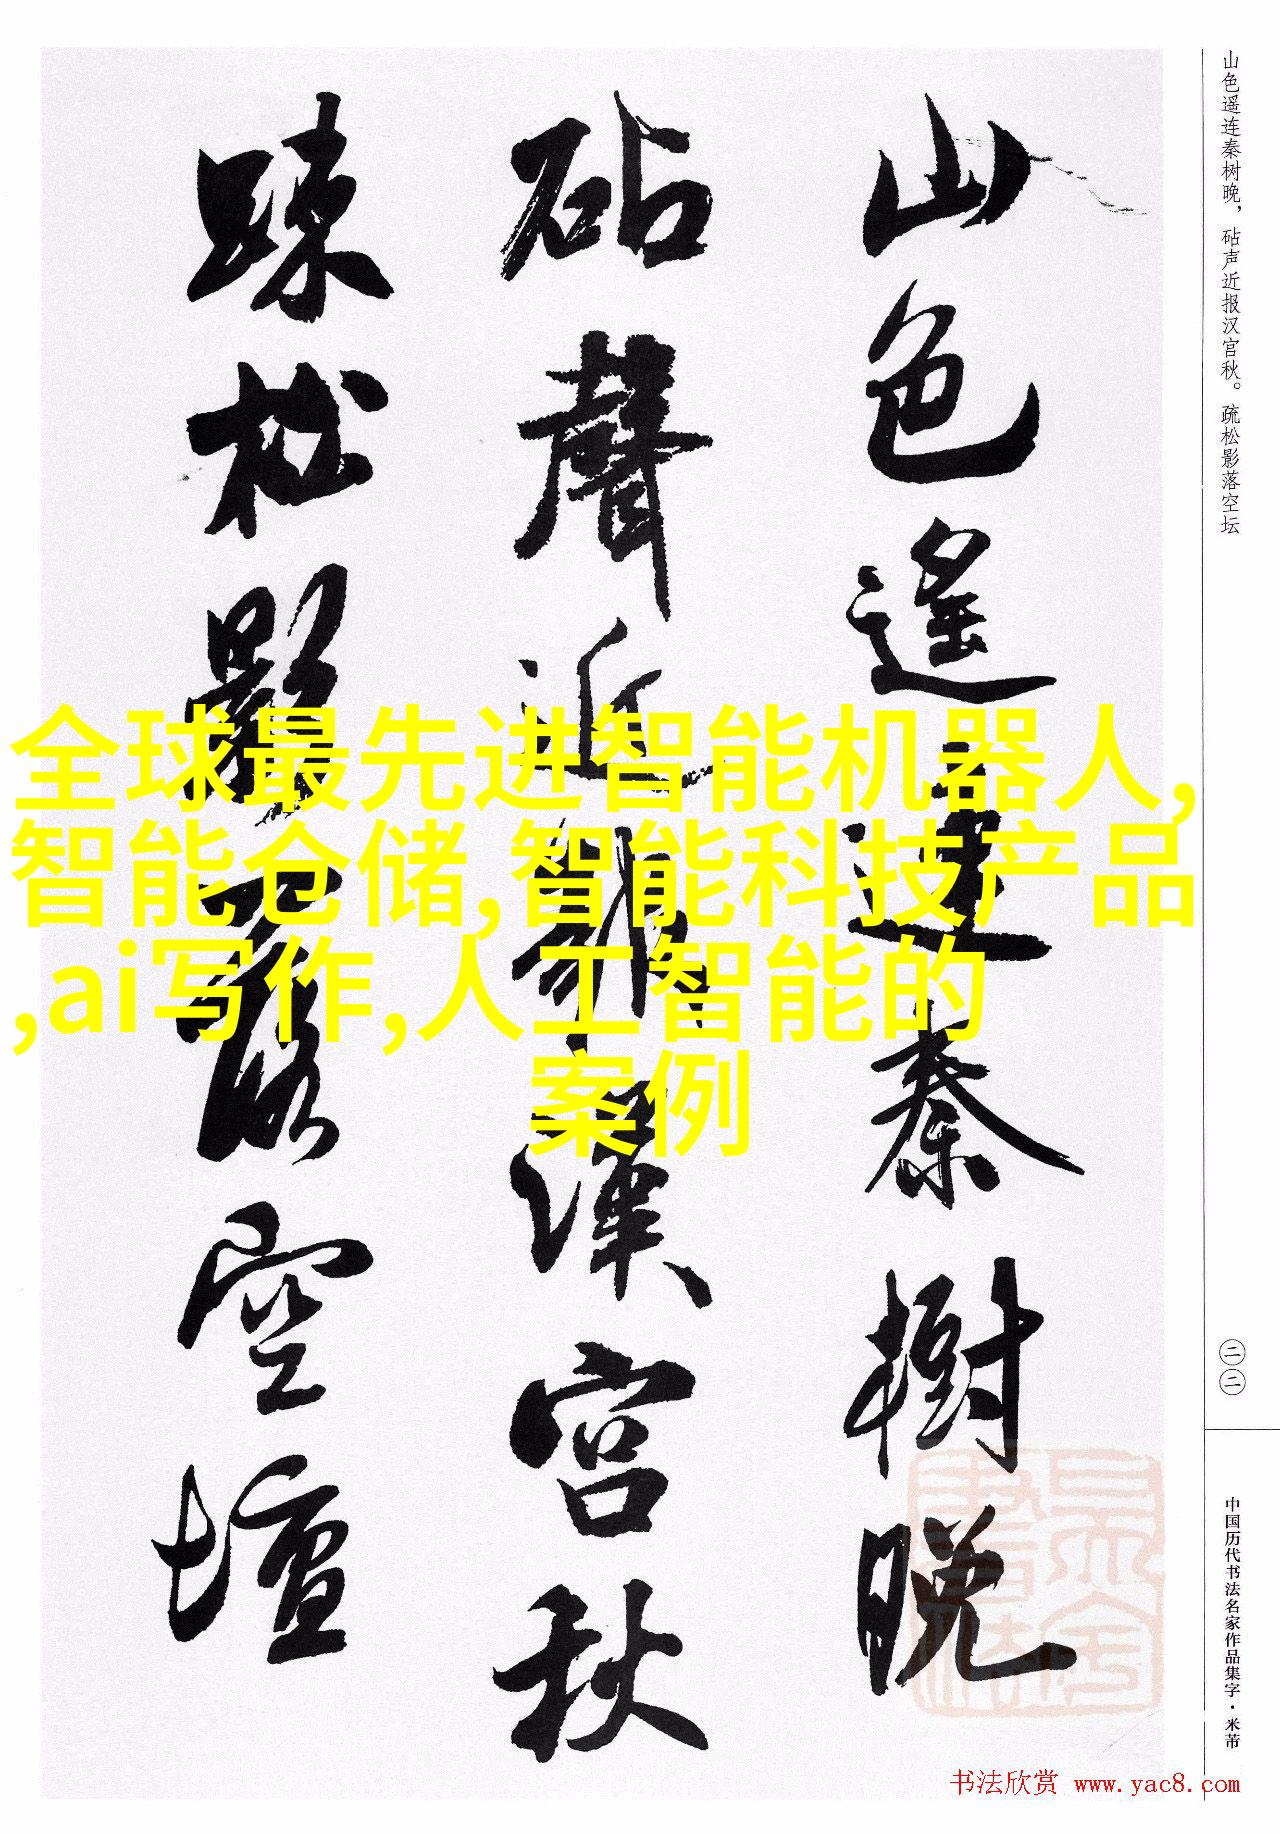 山色遥连秦树晚，砧声近报汉宫秋。疏松影落空坛
山色遙連秦樹晚
砧聲近報漢宮秋
踈松影落空壇
全球最先进智能机器人,
智能仓储,智能科技产品
,ai写作,人工智能的
案例
二二
中国历代书法名家作品集字·米芾
书法欣赏 www.yac8.com